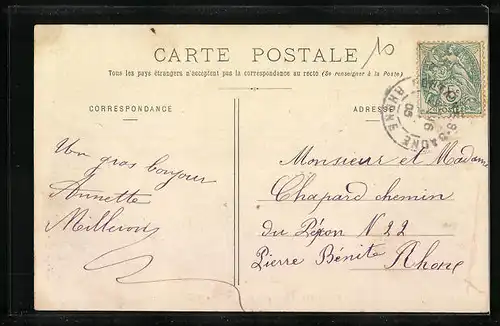 10
CARTE POSTALE
Tous les pays étrangers n'acceptent pas la correspondance au recto (Se renseigner à la Poste)
CORRESPONDANCE
ADRESSE
RHONE
05
Un gros bonjour
Annette
Millevoy
Monsieur et Madame
Chapard chemin
du N 22
Pierre Bénite Rhone